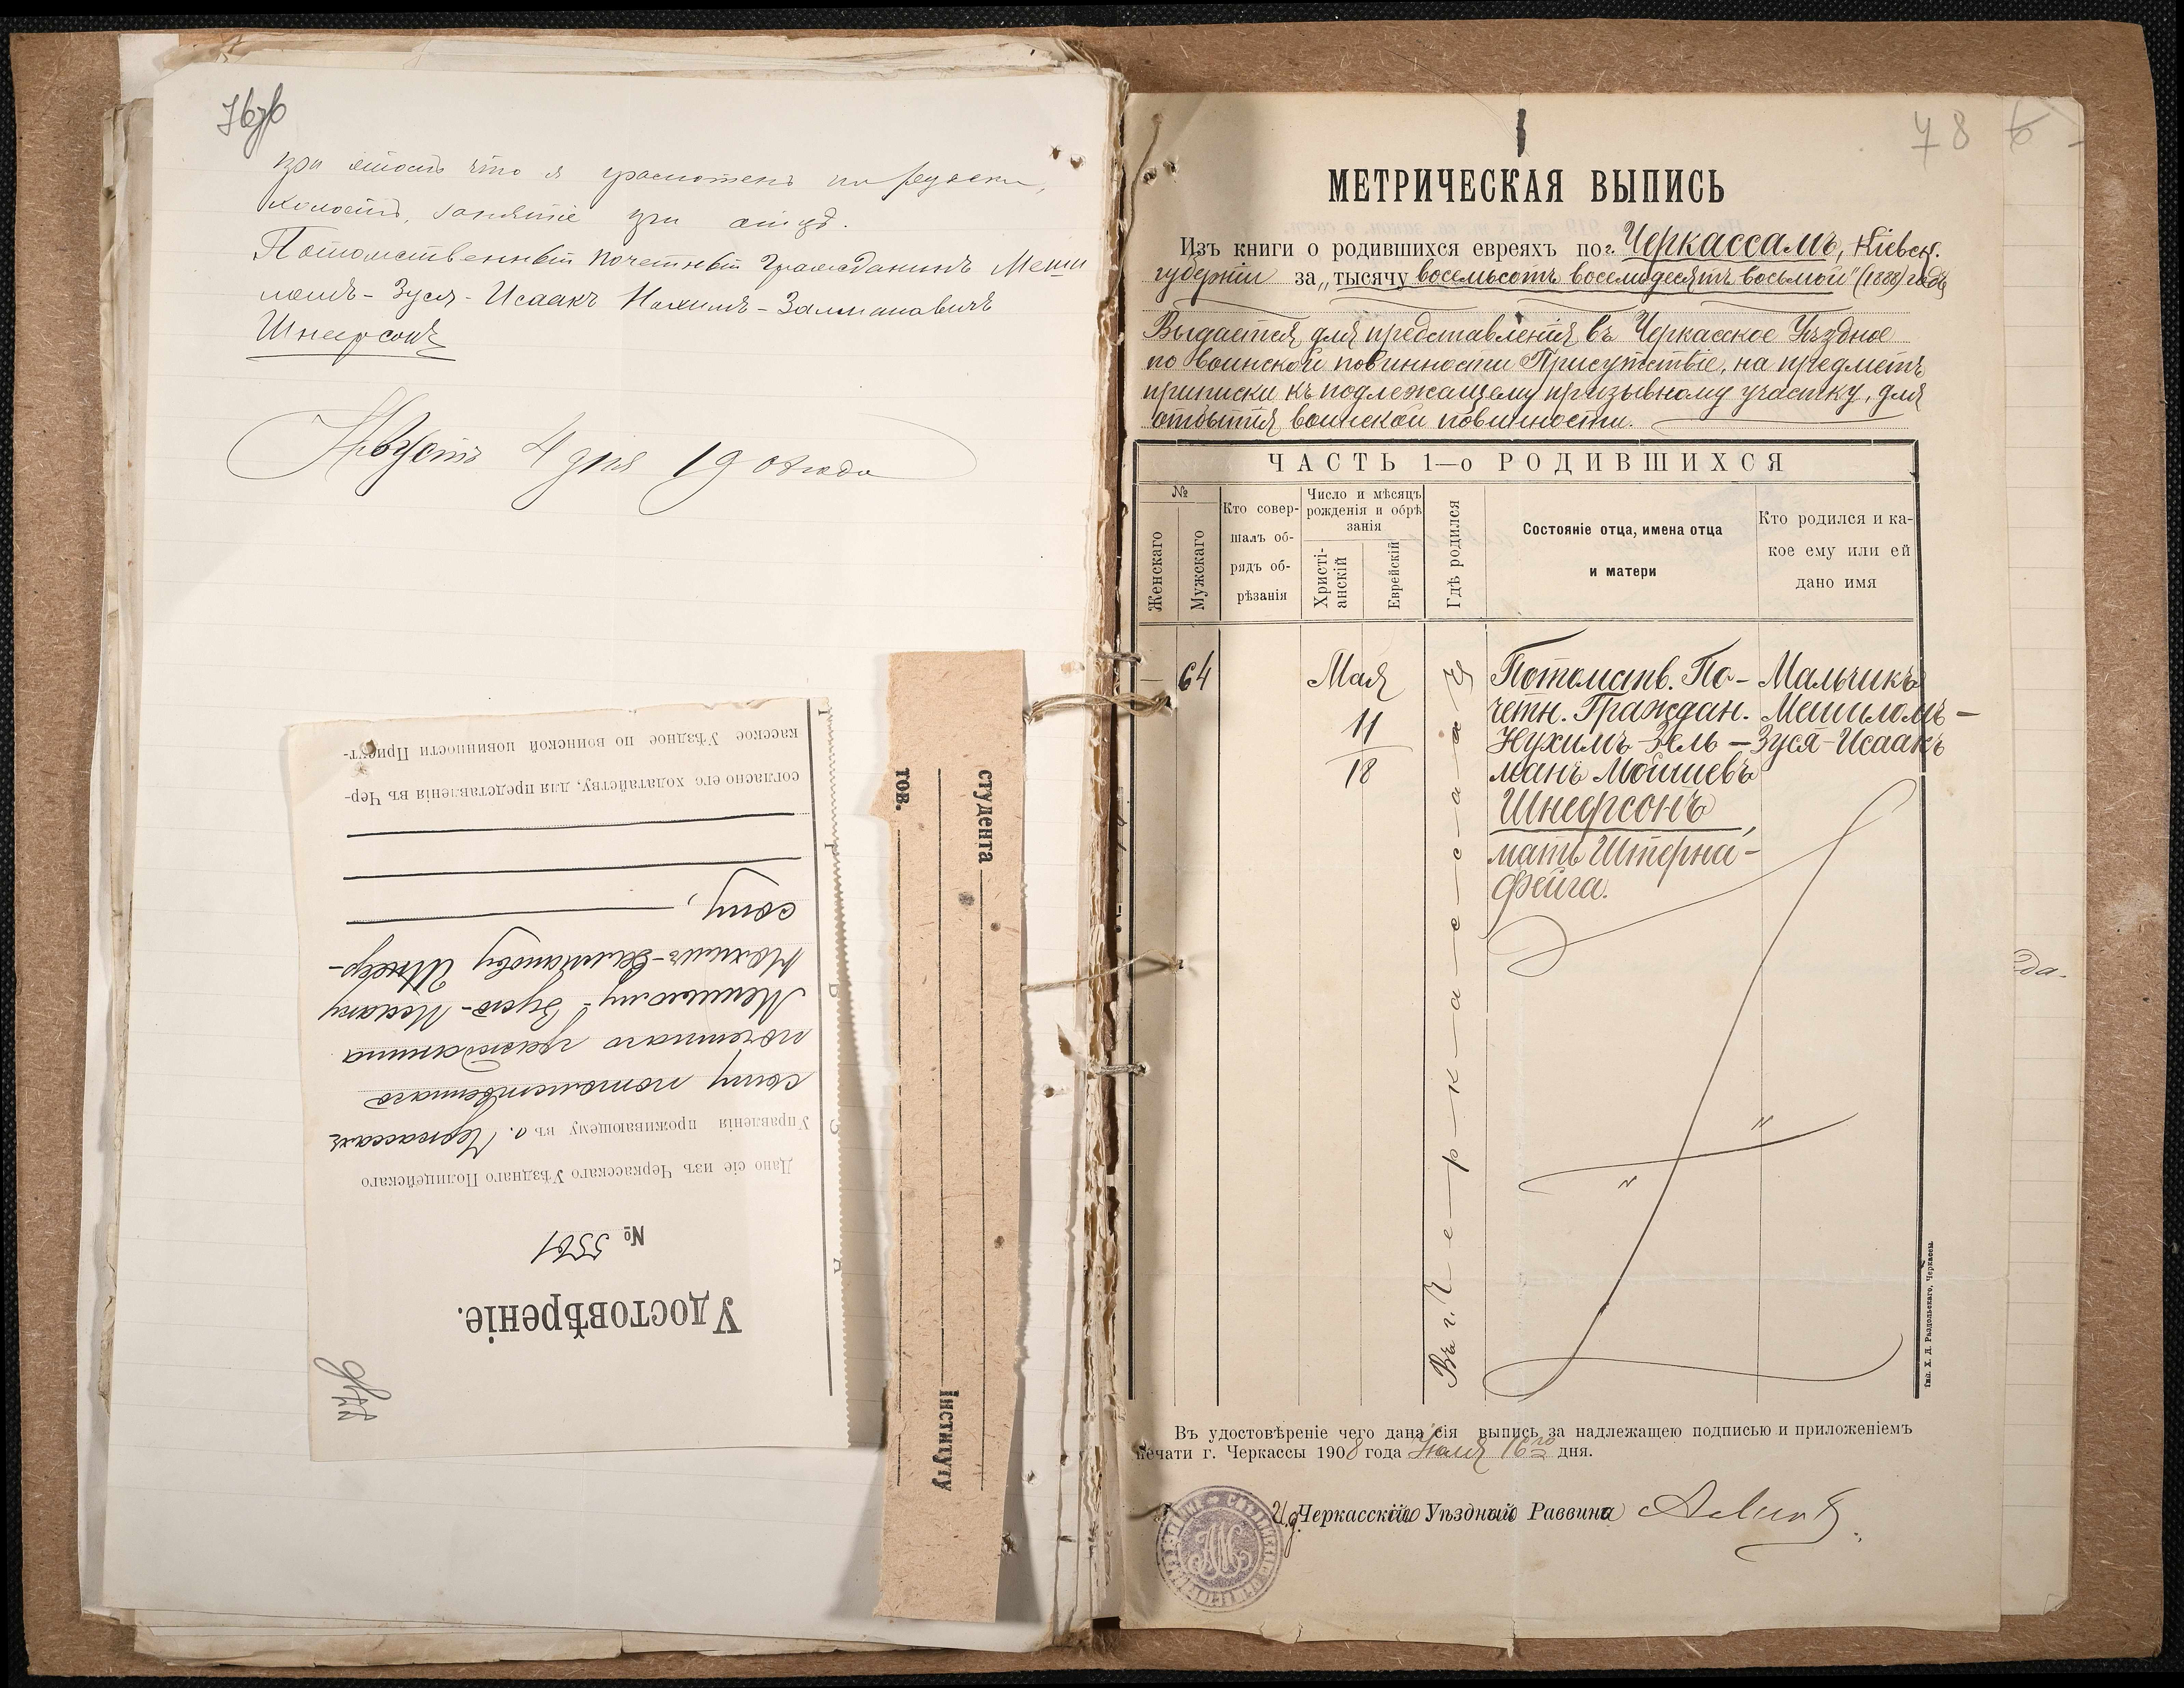 76 об
при этомъ что я грамотенъ по русски,
холостъ, занятіе при отцѣ.
Потомственный почетный Гражданинъ Меши
ломъ-Зуся-Исаакъ Нахимъ-Залмановичъ
Шнеерсонъ
Августъ 4 дня 1908 года
Удостовѣреніе.
№ 5561
Дано сіе изъ Черкасскаго Уѣзднаго Полицейскаго
Управленія проживающему въ г. Черкассахъ
сыну потомственнаго
почетнаго гражданина
Мешилому-Зусю-Исааку
Нахимъ-Залманову Шнеер-
сону,
согласно его ходатайству, для представленія въ Чер-
касское Уѣздное по воинской повинности Присут-
студента
тов.
Інституту
78
МЕТРИЧЕСКАЯ ВЫПИСЬ
Изъ книги о родившихся евреяхъ по г. Черкассамъ, Кіевск.
губерніи за „тысячу восемьсотъ восемьдесятъ восьмой" (1888) годъ
Выдается для представленія въ Черкасское Уѣздное
по воинской повинности Присутствіе, на предметъ
приписки къ подлежащему призывному участку, для
отбытія воинской повинности.
ЧАСТЬ 1—о РОДИВШИХСЯ
№
Женскаго
Мужскаго
Кто совер-
шалъ об-
рядъ об-
рѣзанія
Число и мѣсяцъ
рожденія и обрѣ
занія
Христі-
анскій
Еврейскій
Гдѣ родился
Состояніе отца, имена отца
и матери
Кто родился и ка-
кое ему или ей
дано имя
— 64
Мая
11
18
Въ г. Ч—е—р—к—а—с—с—а—х—ъ
Потомств. По-
четн. Граждан.
Нухимъ-Зель-
манъ Мошіевъ
Шнеерсонъ,
мать Штерна-
Фейга.
Мальчикъ
Мешиломъ-
Зуся-Исаакъ
Въ удостовѣреніе чего дана сія выпись за надлежащею подписью и приложеніемъ
печати г. Черкассы 1908 года Іюля 16го дня.
И. д. Черкасскаго Уѣзднаго Раввина
Тип. Х. Д. Раздольскаго, Черкассы.